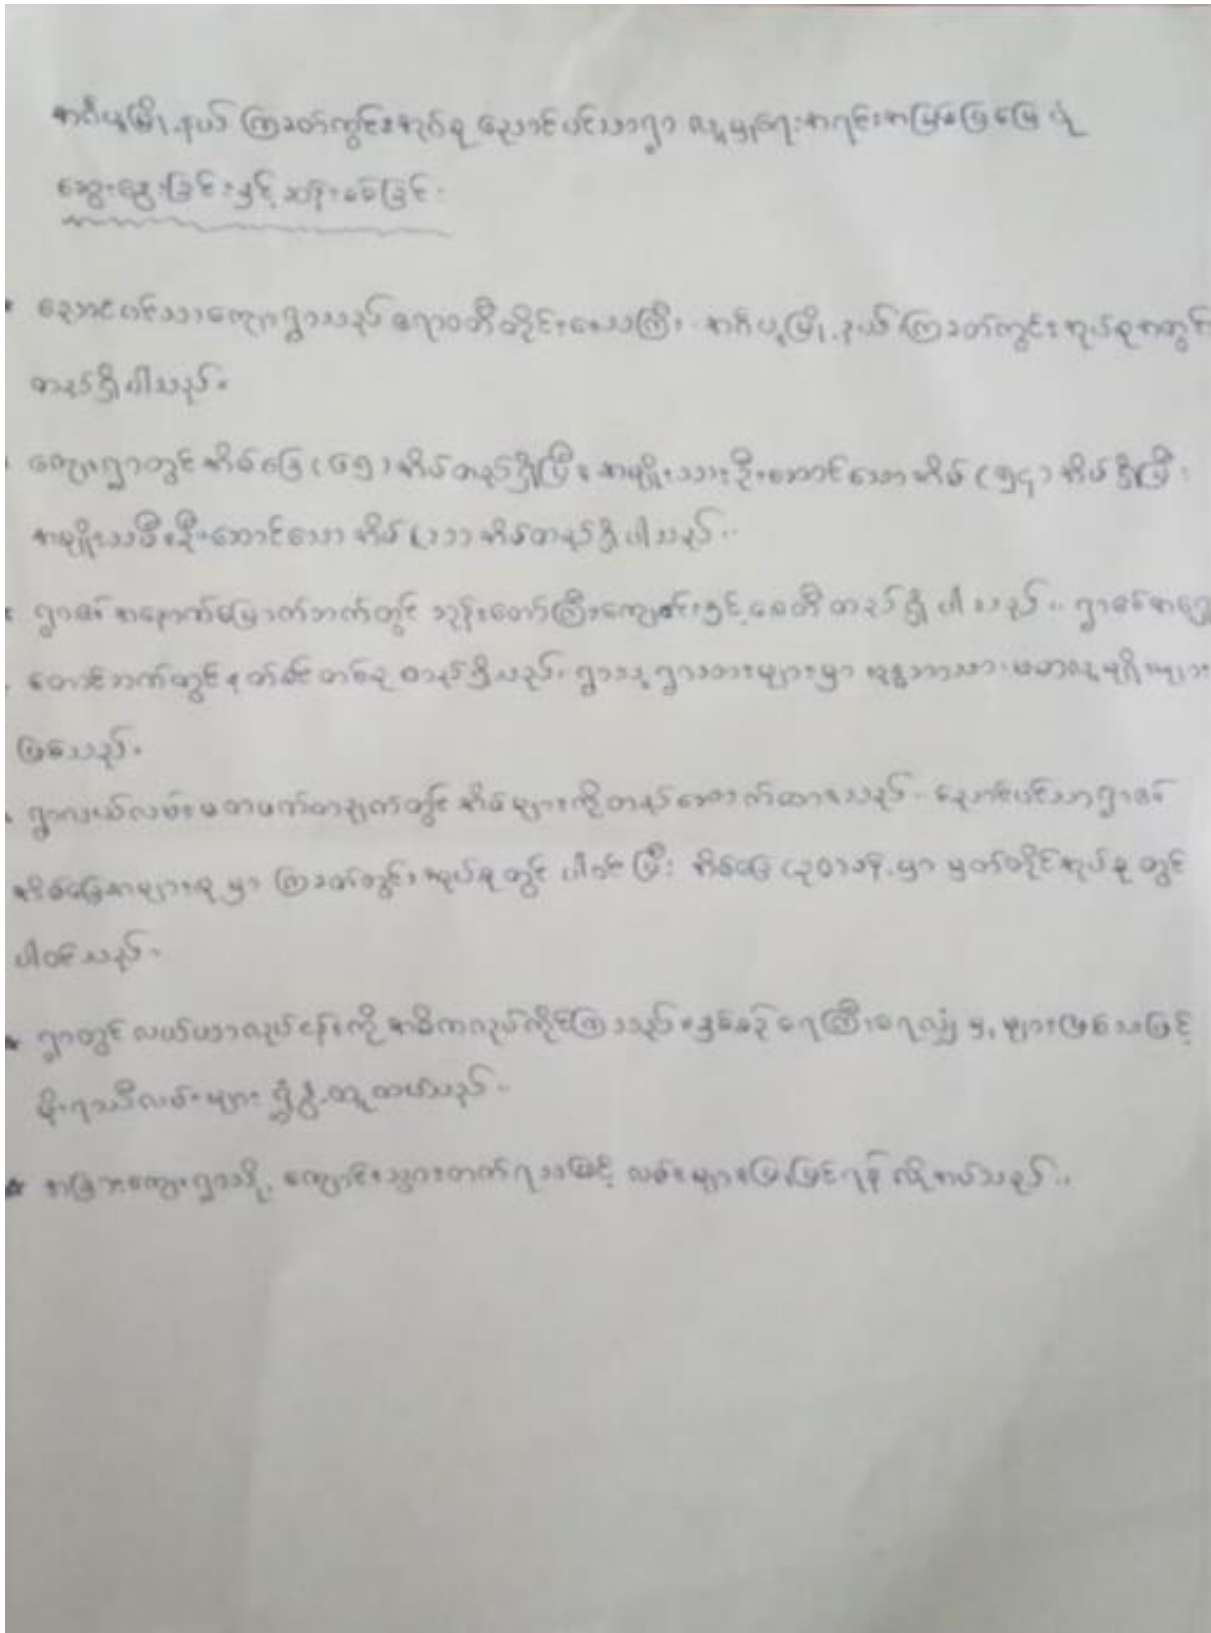 အင်္ဂပူမြို့နယ် ကြခတ်ကွင်းအုပ်စု ညောင်ပင်သာရွာ လူမှုရေးအရင်းအမြစ်မြေပုံ
ဆွေးနွေးခြင်းနှင့်ဆန်းစစ်ခြင်း
ညောင်ပင်သာကျေးရွာသည် ဧရာဝတီတိုင်းဒေသကြီး အင်္ဂပူမြို့နယ် ကြခတ်ကွင်းအုပ်စုအတွင်း
တည်ရှိပါသည်။
ကျေးရွာတွင် အိမ်ခြေ (၆၅) အိမ်တည်ရှိပြီး အမျိုးသားဦးဆောင်သောအိမ် (၅၄) အိမ်ရှိပြီး
အမျိုးသမီးဦးဆောင်သော အိမ် (၁၁) အိမ်တည်ရှိပါသည်။
ရွာ၏ အနောက်မြောက်ဘက်တွင် ဘုန်းတော်ကြီးကျောင်းနှင့်စေတီတည်ရှိပါသည်။ ရွာ၏အရှေ့
တောင်ဘက်တွင် နတ်စင်တစ်ခု တည်ရှိသည်။ ရွာသူရွာသားများမှာ ဗုဒ္ဓဘာသာ ဗမာလူမျိုးများ
ဖြစ်သည်။
ရွာလယ်လမ်းမတဖက်တချက်တွင် အိမ်များကိုတည်ဆောက်ထားသည်။ ညောင်ပင်သာရွာ၏
အိမ်ခြေအများစုမှာ ကြခတ်ကွင်းအုပ်စုတွင် ပါဝင်ပြီး အိမ်ခြေ မှာ မှတ်တိုင်အုပ်စုတွင်
ပါဝင်သည်။
ရွာတွင် လယ်ယာလုပ်ငန်းကို အဓိကလုပ်ကိုင်ကြသည်။ နှစ်စဉ် ရေကြီးရေလျှံမှုများဖြစ်သဖြင့်
မိုးရာသီလမ်းများ ရွှံ့နွံထူထပ်သည်။
အခြားကျေးရွာသို့ ကျောင်းသွားတက်ရသဖြင့် လမ်းများပြုပြင်ရန် လိုအပ်သည်။